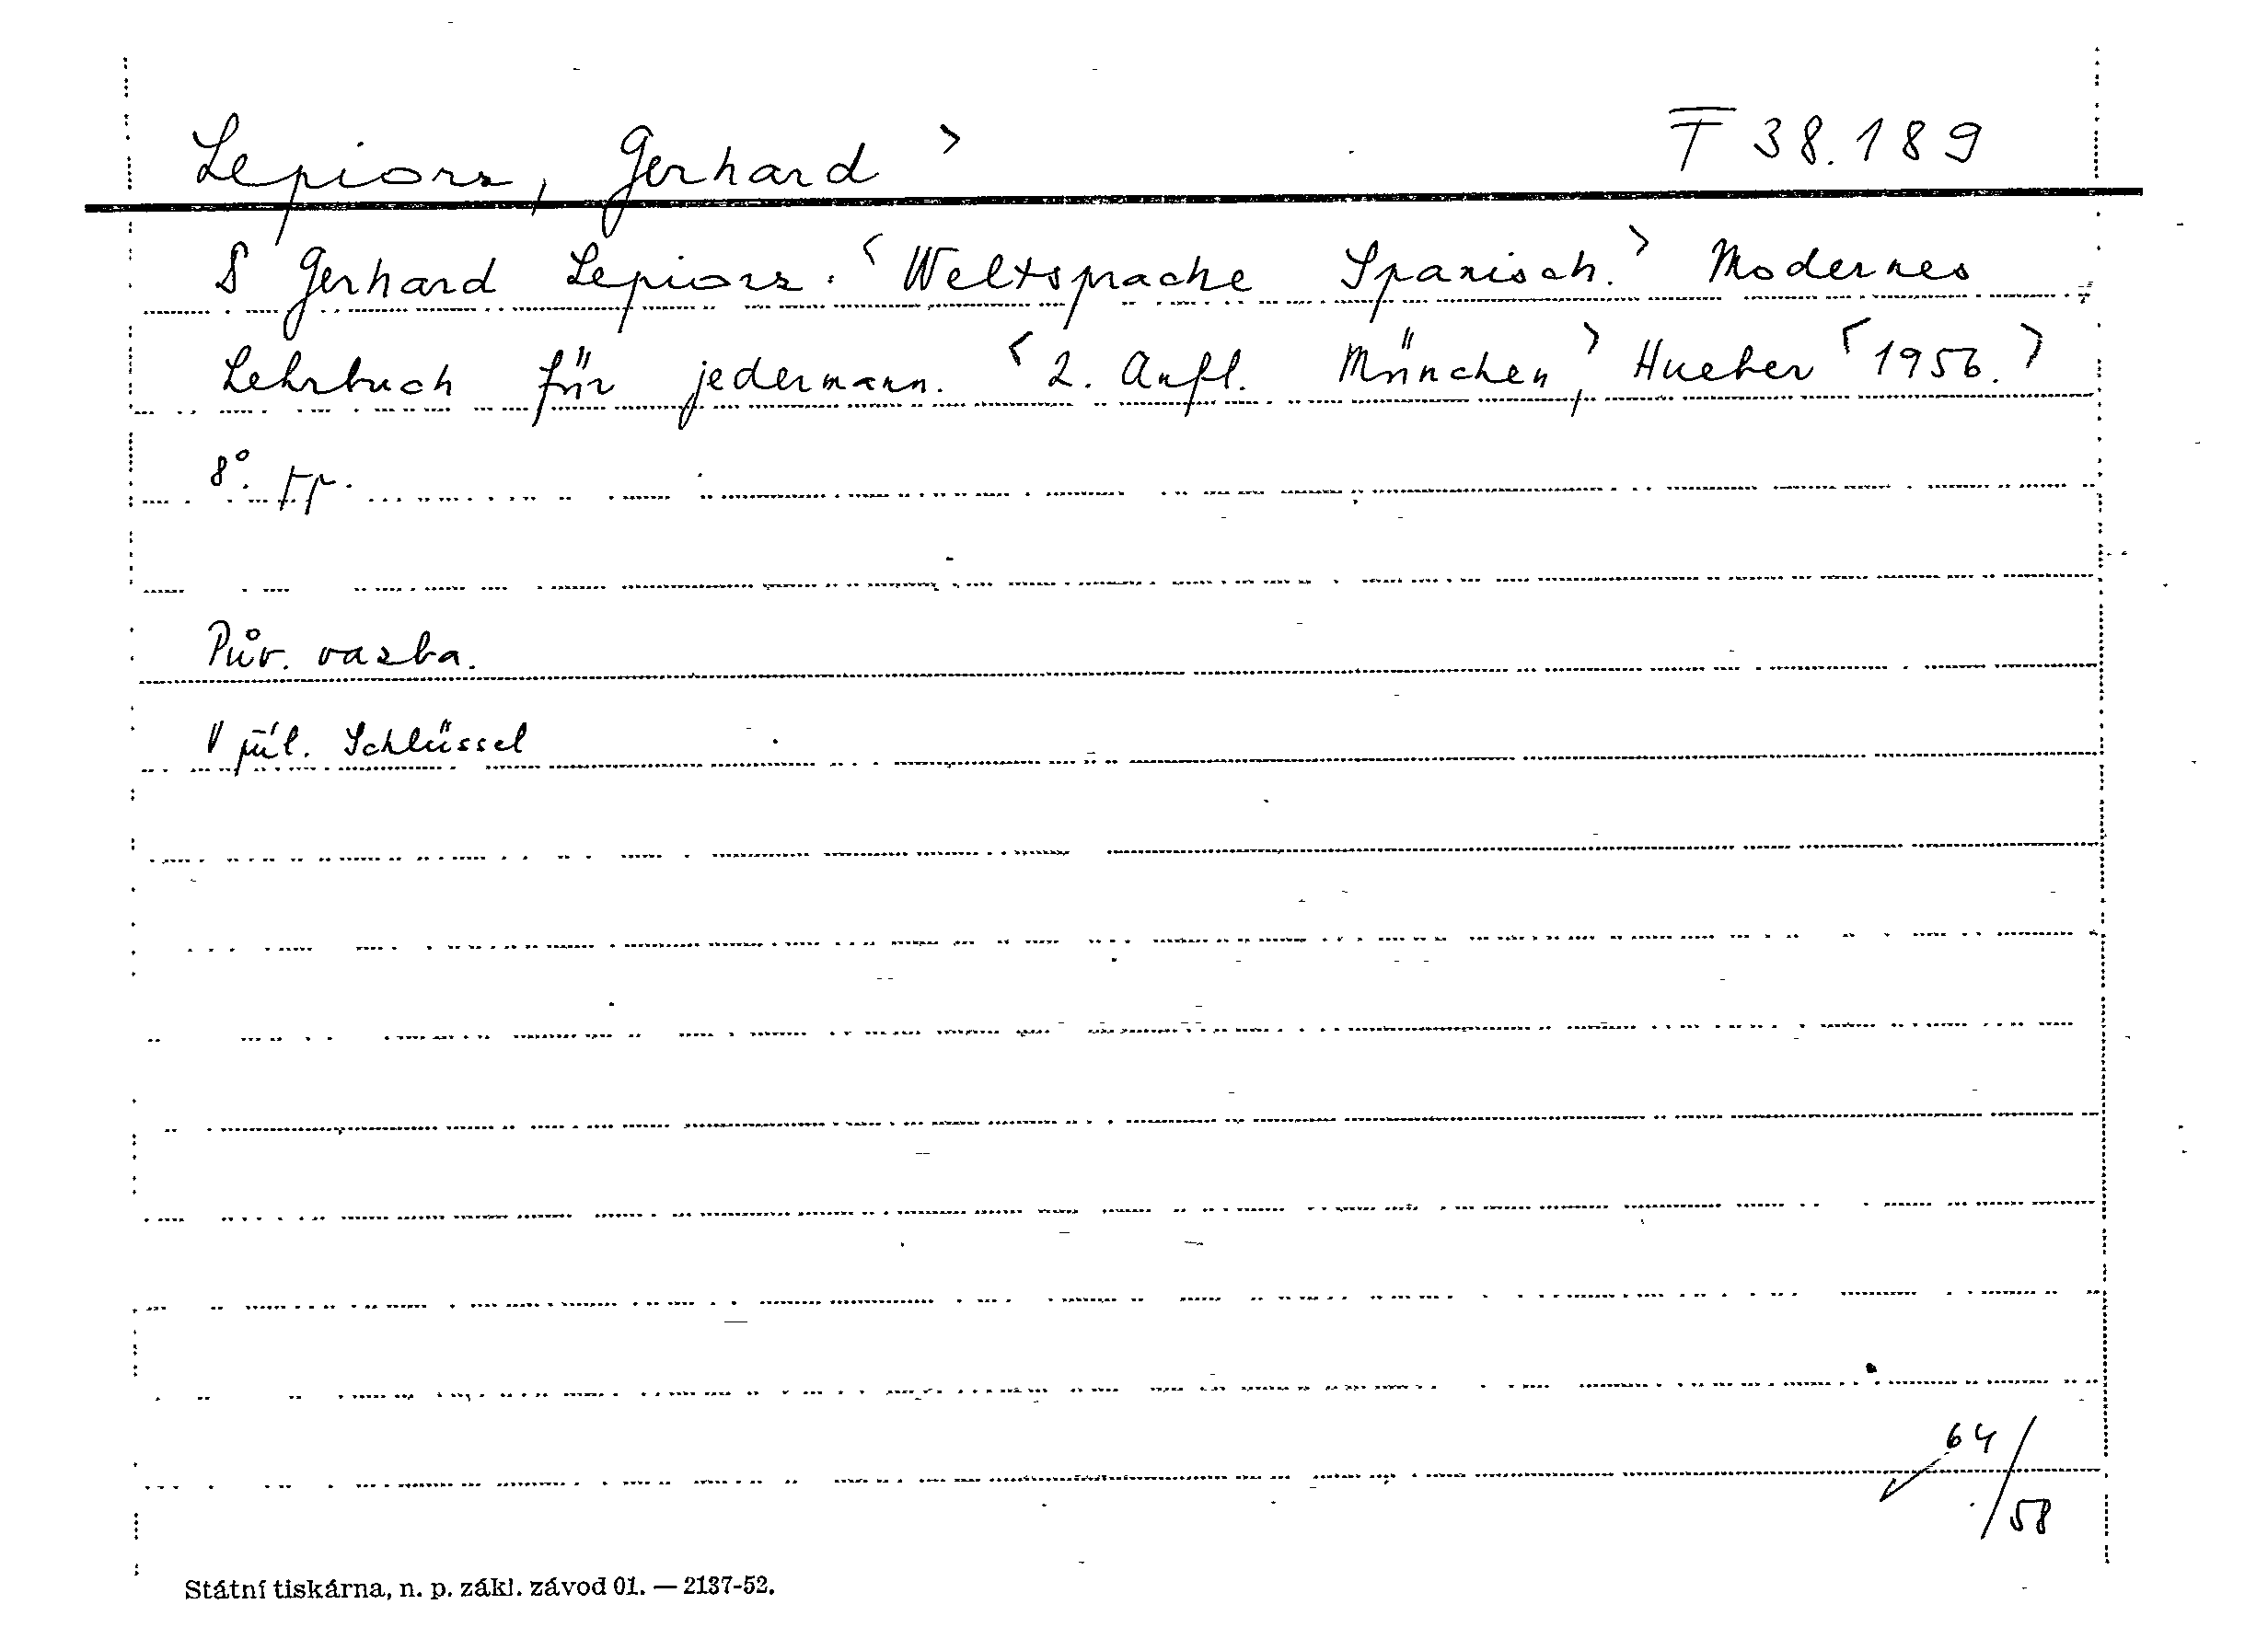 Lepiorz, Gerhard > T 38.189
§ Gerhard Lepiorz. < Weltsprache Spanisch. > Modernes
Lehrbuch für jedermann. < 2. Aufl. München, > Hueber < 1956. >
8°.
Pův. vazba.
V příl. Schlüssel
64/58
Státní tiskárna, n. p. zákl. závod 01. — 2137-52.